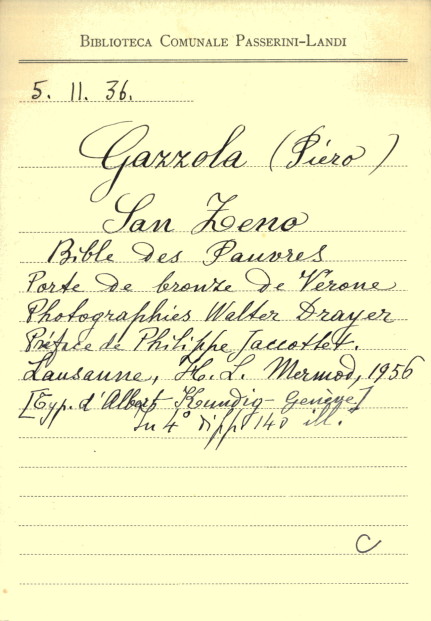 BIBLIOTECA COMUNALE PASSERINI-LANDI
5. 11. 36.
Gazzola (Piero)
San Zeno
Bible des Pauvres
Porte de bronze de Verone
Photographies Walter Drayer
Préface de Philippe Jaccottet.
Lausanne, H. L. Mermod, 1956
[Typ. d'Albert Kundig - Genève]
In 4° di pp 140 ill.
C